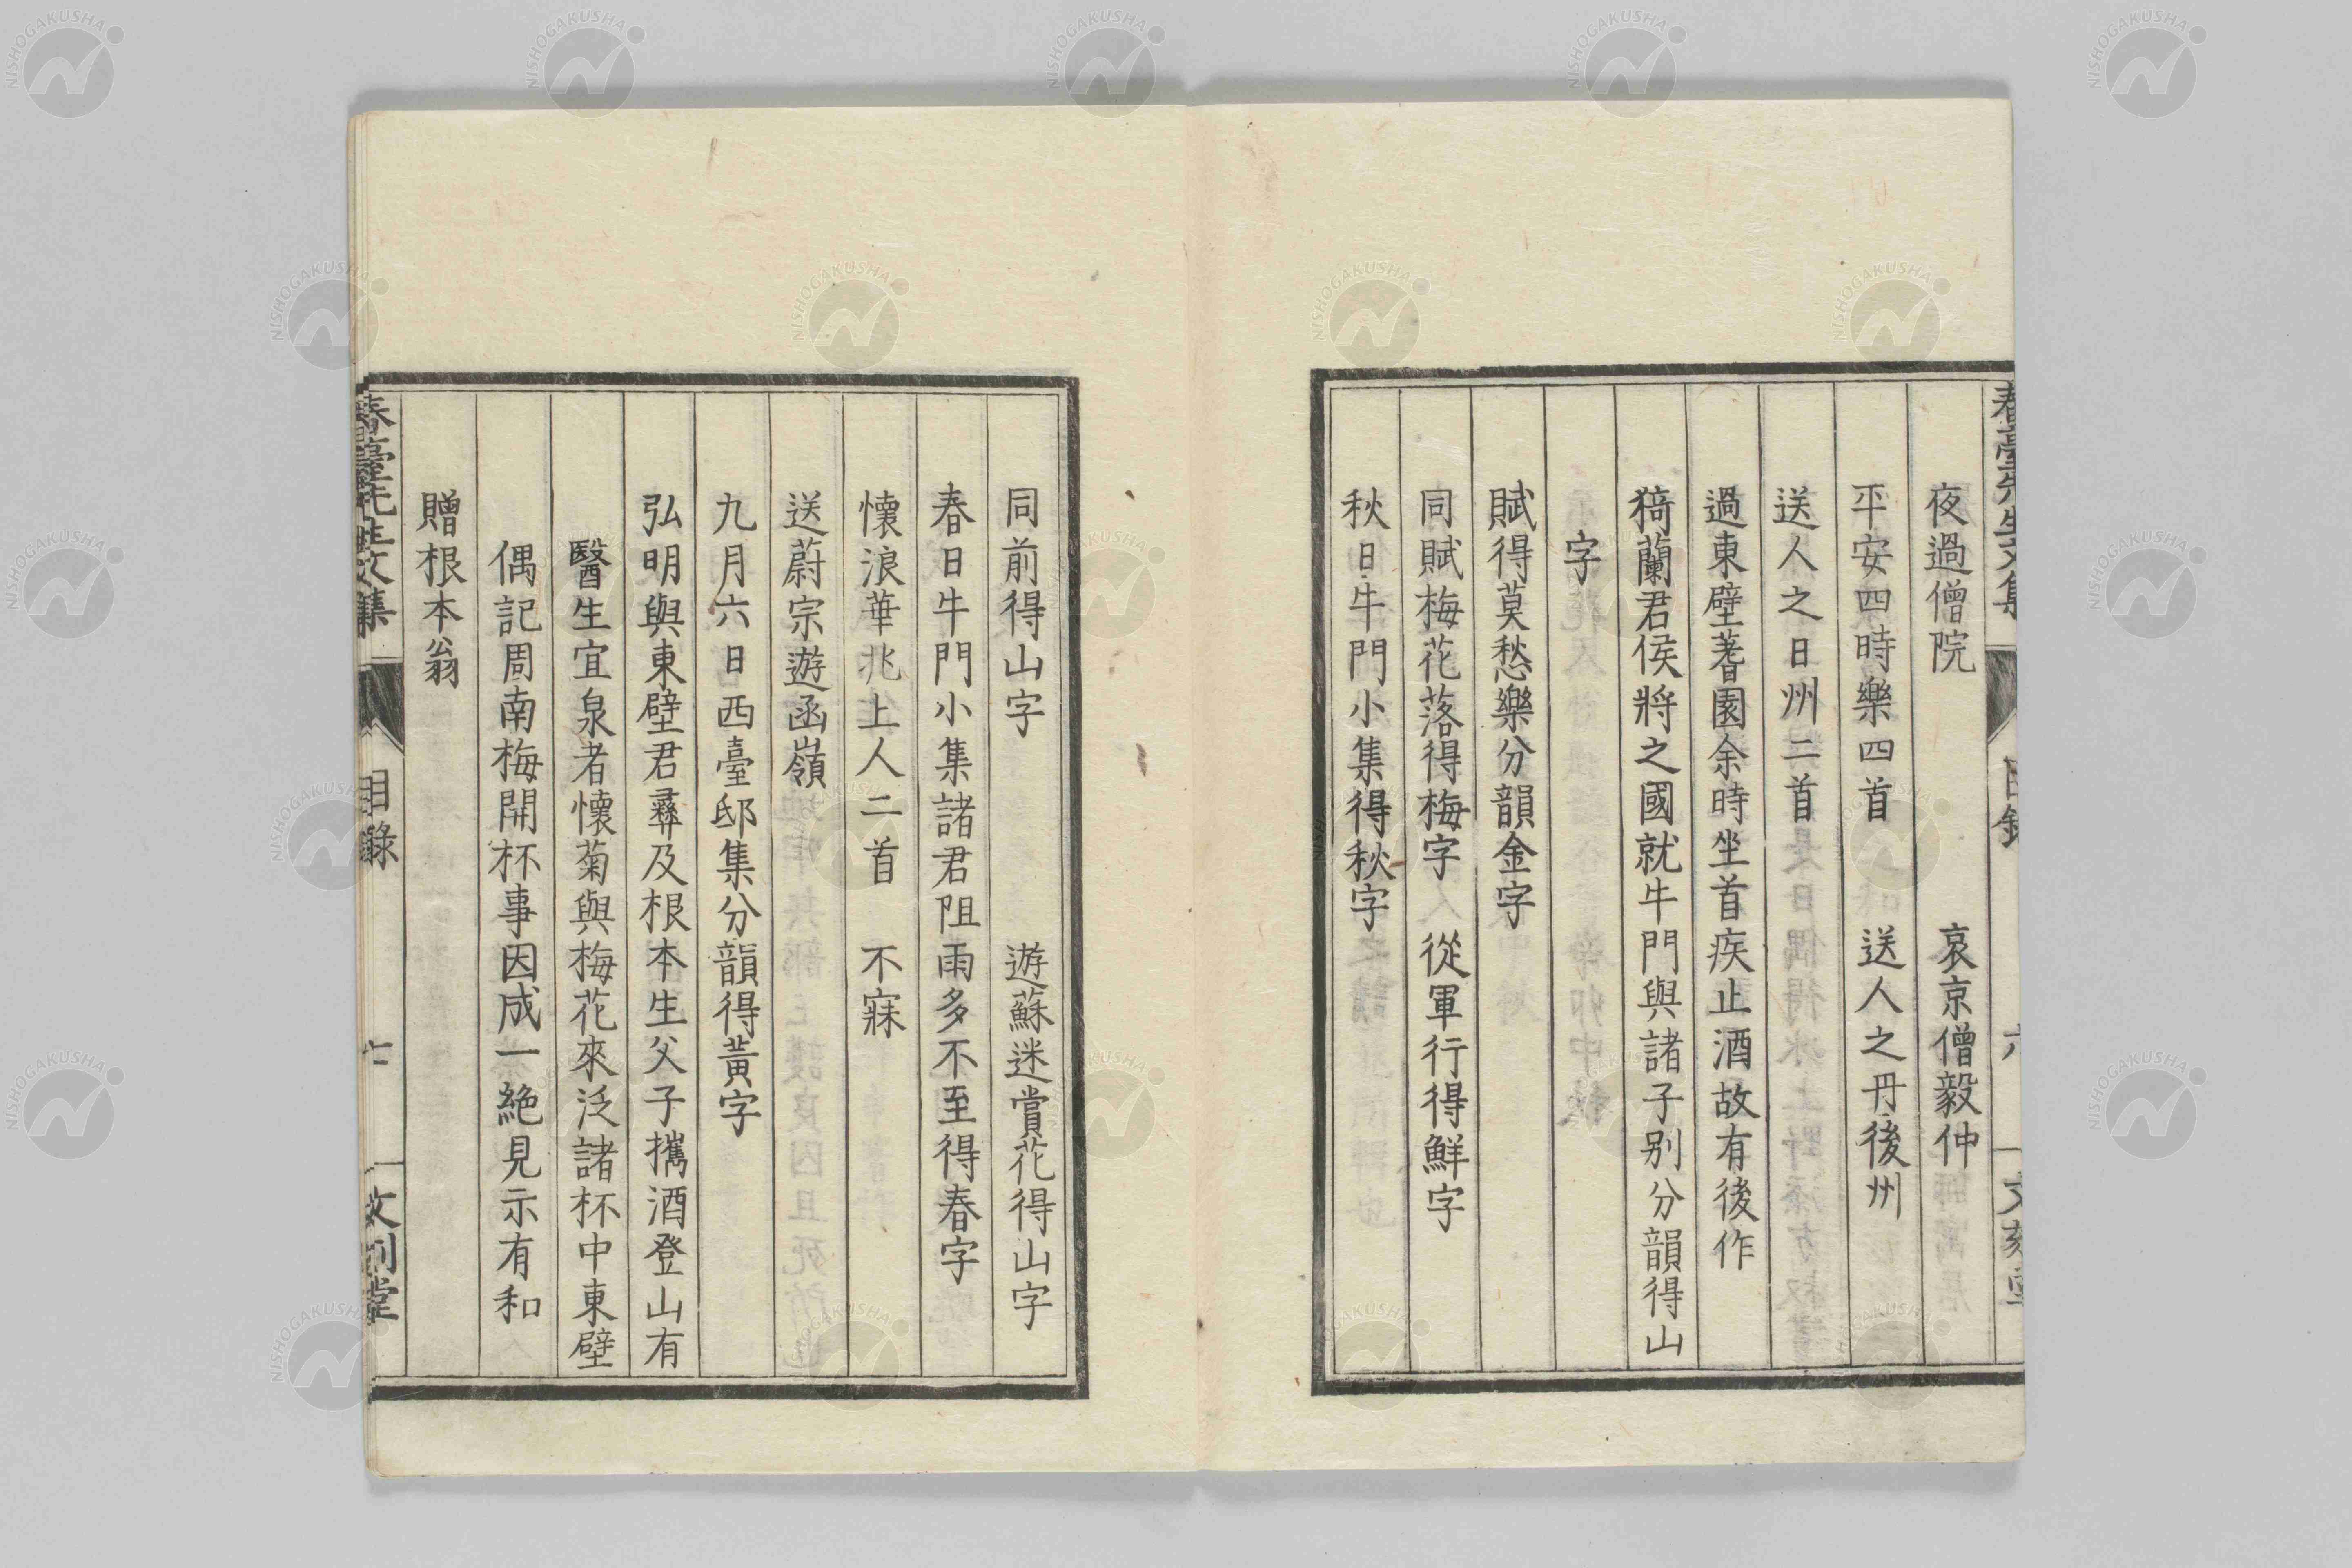 春臺先生文集
目錄
六
文刻堂
夜過僧院 哀京僧毅仲
平安四時樂四首 送人之丹後州
送人之日州二首
過東壁蓍園余時坐首疾止酒故有後作
猗蘭君侯將之國就牛門與諸子别分韻得山
字
賦得莫愁樂分韻金字
同賦梅花落得梅字 從軍行得鮮字
秋日牛門小集得秋字
同前得山字 遊蘇迷賞花得山字
春日牛門小集諸君阻雨多不至得春字
懷浪華兆上人二首 不寐
送蔚宗遊函嶺
九月六日西臺邸集分韻得黃字
弘明與東壁君彞及根本生父子攜酒登山有
醫生宜泉者懷菊與梅花來泛諸杯中東壁
偶記周南梅開杯事因成一絶見示有和
贈根本翁
春臺先生文集
目錄
七
文刻堂
NISHOGAKUSHA